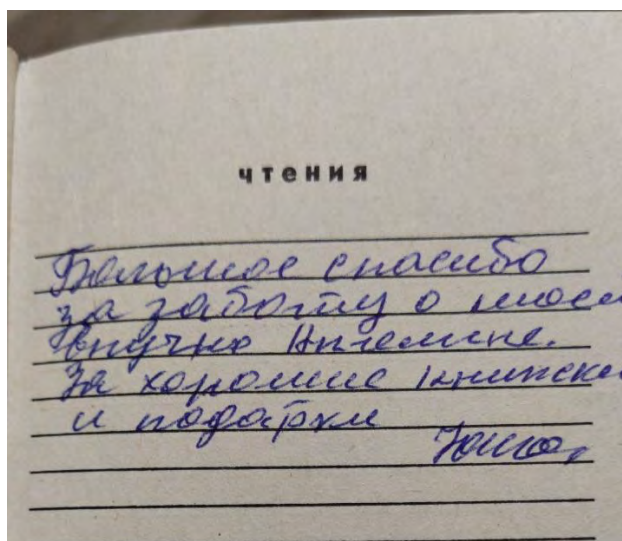 чтения
Большое спасибо
за заботу о моей
внучке
За хорошие книжки
и подарки